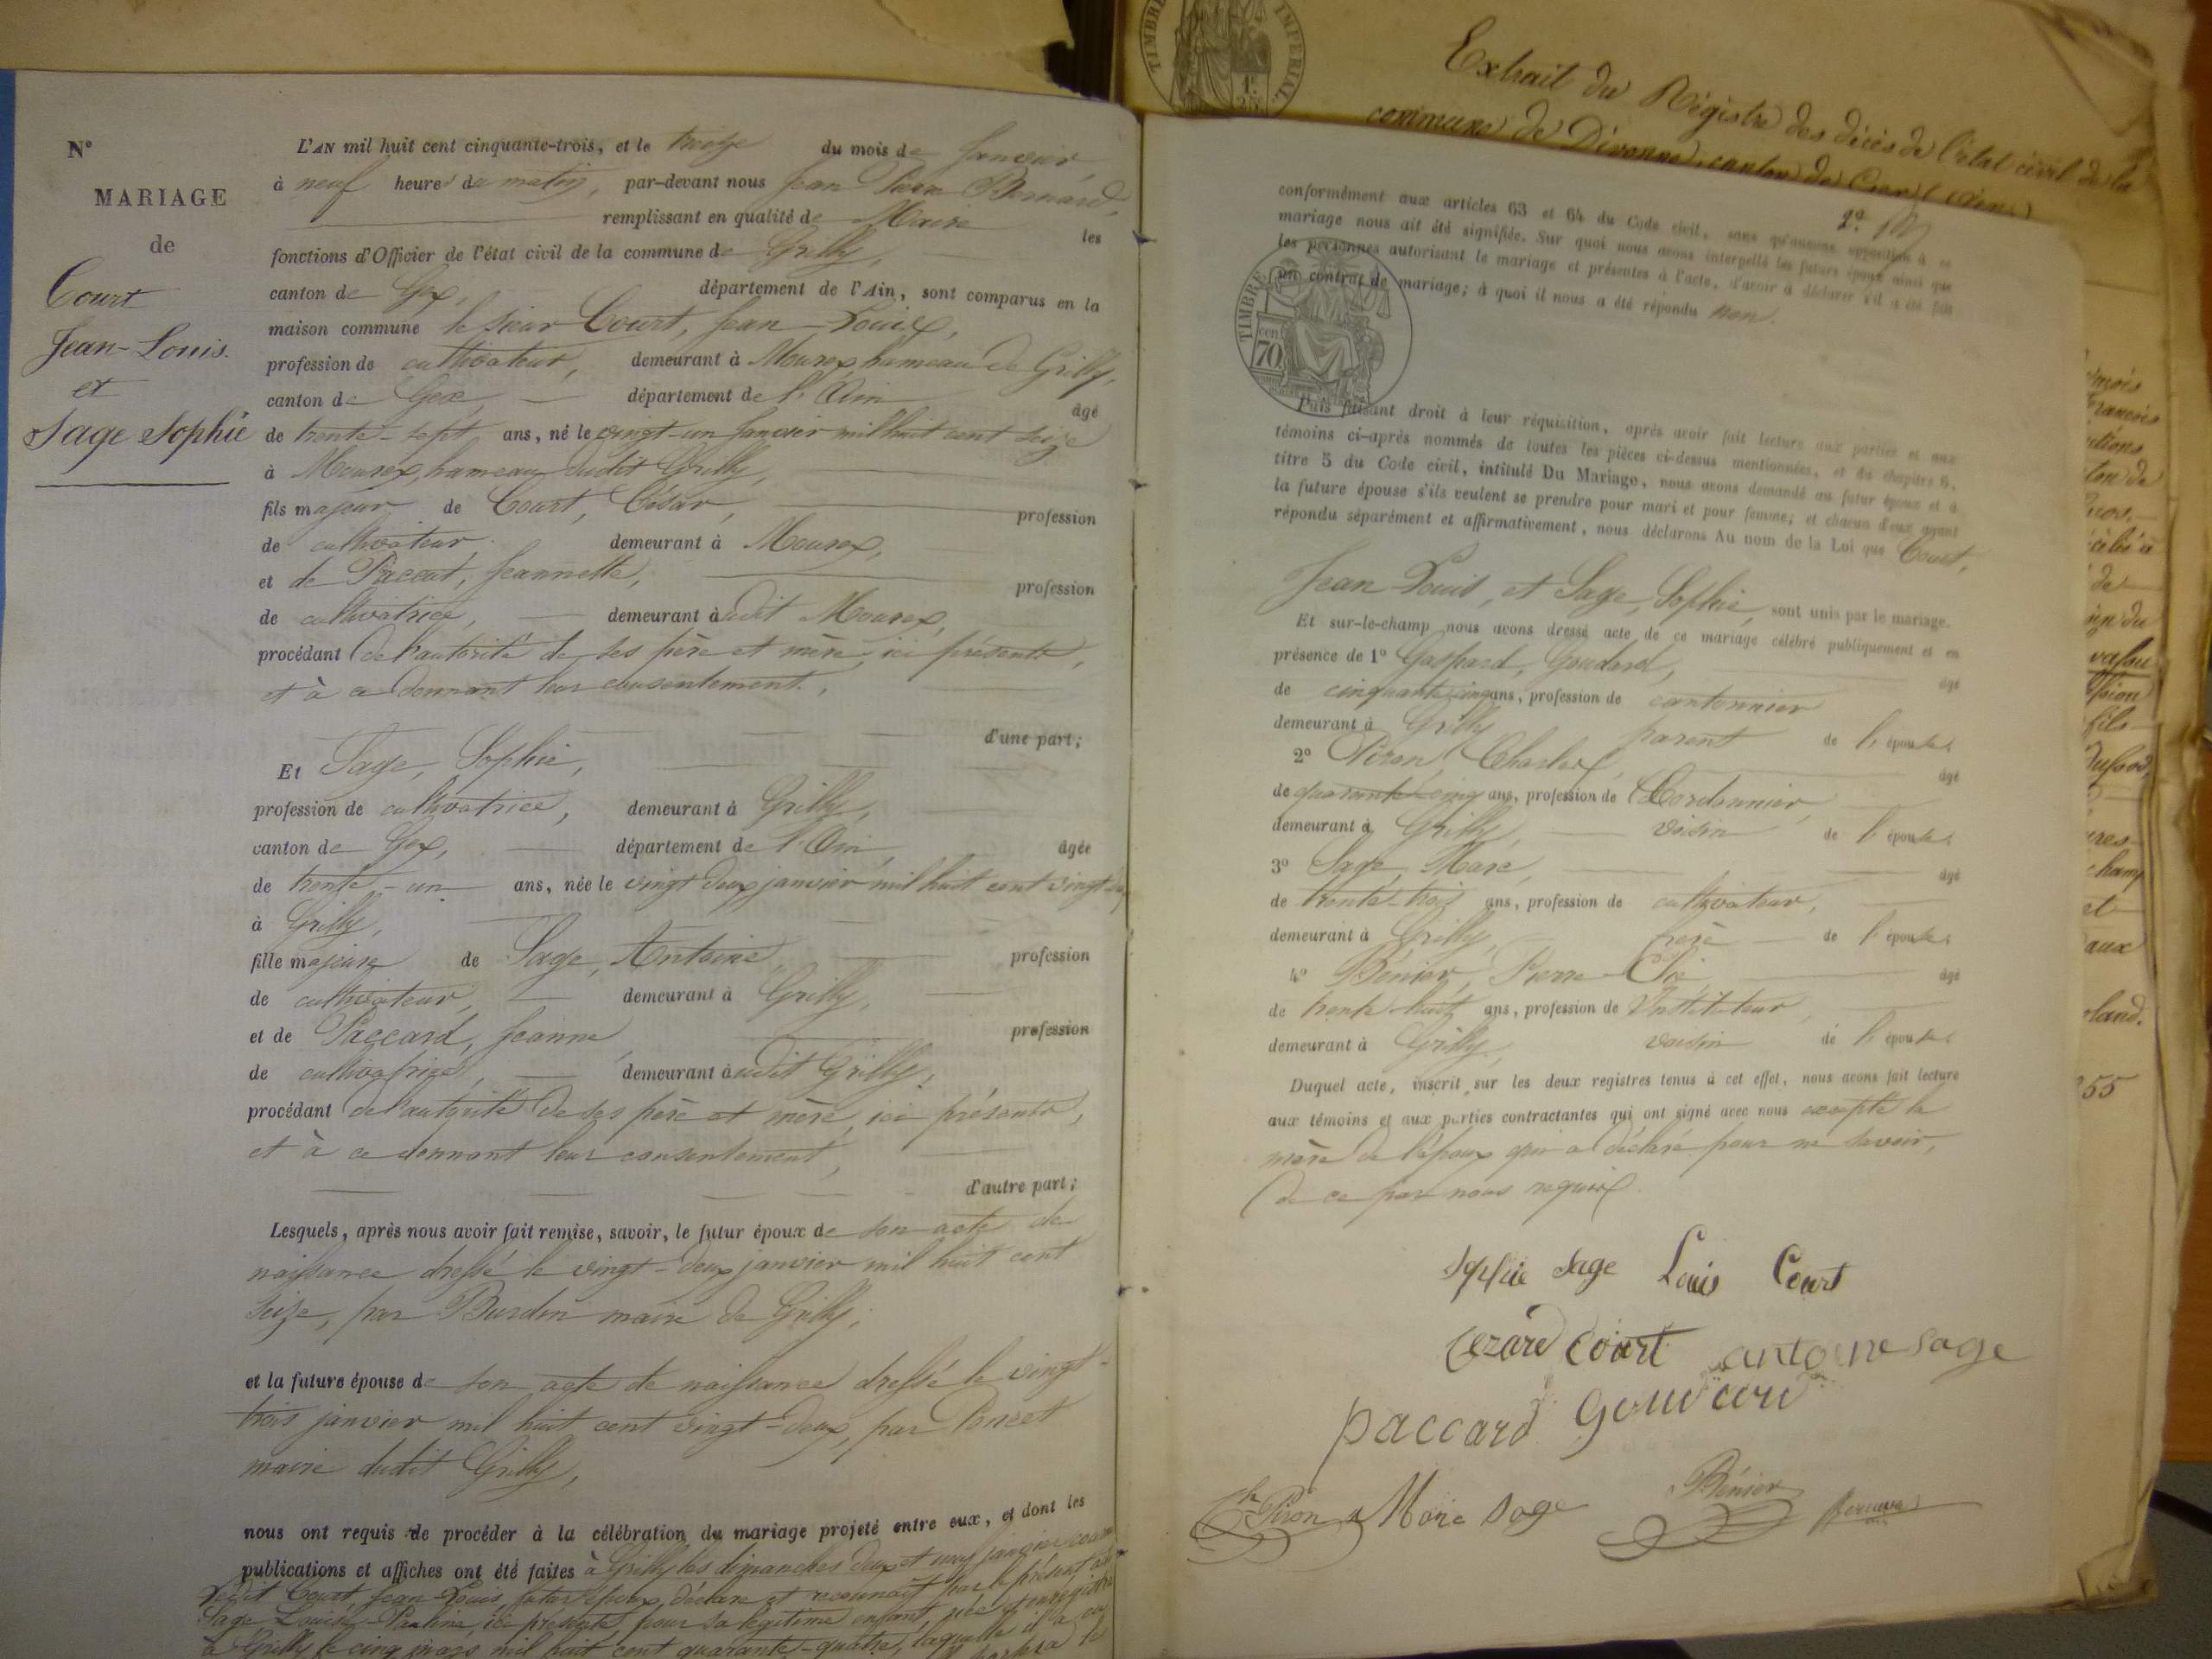 Nº
MARIAGE
de
Court
Jean-Louis.
et
Sage Sophie
L'AN mil huit cent cinquante-trois, et le treize du mois de Janvier,
à neuf heures du matin, par-devant nous Jean Pierre Bernard,
remplissant en qualité de Maire les
fonctions d'Officier de l'état civil de la commune de Grilly,
canton de Gex, département de l'Ain, sont comparus en la
maison commune le sieur Court, Jean-Louis,
profession de cultivateur, demeurant à Mourex, hameau de Grilly,
canton de Gex département de l'Ain âgé
de trente-sept ans, né le vingt-un janvier mil huit cent seize
à Mourex, hameau dudit Grilly,
fils majeur de Court, César, profession
de cultivateur demeurant à Mourex,
et de Paccat, Jeannette, profession
de cultivatrice, demeurant audit Mourex,
procédant de l'autorité de ses père et mère, ici présents,
et à ce donnant leur consentement.,
d'une part;
Et Sage, Sophie,
profession de cultivatrice, demeurant à Grilly,
canton de Gex, département de l'Ain, âgée
de trente-un ans, née le vingt-deux janvier mil huit cent vingt-
à Grilly,
fille majeure de Sage, Antoine, profession
de cultivateur, demeurant à Grilly,
et de Paccard, Jeanne profession
de cultivatrice, demeurant audit Grilly,
procédant de l'autorité de ses père et mère, ici présents,
et à ce donnant leur consentement,
d'autre part;
Lesquels, après nous avoir fait remise, savoir, le futur époux de son acte de
naissance dressé le vingt-deux janvier mil huit cent
seize, par Burdin maire de Grilly;
et la future épouse de son acte de naissance dressé le vingt-
trois janvier mil huit cent vingt-deux, par Poncet
maire dudit Grilly,
nous ont requis de procéder à la célébration du mariage projeté entre eux, et dont les
publications et affiches ont été faites à Grilly les dimanches deux et neuf janvier courant
Ledit Court, Jean-Louis, futur époux, déclare et reconnaît par le présent acte
Sage Louise-Pauline, ici présente, pour sa légitime enfant, née et enregistrée
à Grilly le cinq mars mil huit cent quarante-quatre, laquelle il a eu
TIMBRE IMPÉRIAL
1f.
25c.
Extrait du Régistre des décès de l'état civil de la
commune de Divonne, canton de Gex (Ain)
2º.
conformément aux articles 63 et 64 du Code civil, sans qu'aucune opposition à ce
mariage nous ait été signifiée. Sur quoi nous avons interpellé les futurs époux ainsi que
les personnes autorisant le mariage et présentes à l'acte, d'avoir à déclarer s'il a été fait
un contrat de mariage; à quoi il nous a été répondu non.
TIMBRE
cent
70
Puis faisant droit à leur réquisition, après avoir fait lecture aux parties et aux
témoins ci-après nommés de toutes les pièces ci-dessus mentionnées, et du chapitre 6,
titre 5 du Code civil, intitulé Du Mariage, nous avons demandé au futur époux et à
la future épouse s'ils veulent se prendre pour mari et pour femme; et chacun d'eux ayant
répondu séparément et affirmativement, nous déclarons Au nom de la Loi que Court,
Jean Louis, et Sage, Sophie, sont unis par le mariage.
Et sur-le-champ nous avons dressé acte de ce mariage célébré publiquement et en
présence de 1º Gaspard, Goudard, âgé
de cinquante-cinq ans, profession de cantonnier
demeurant à Grilly parent de l'épouse.
2º Piron, Charles, âgé
de quarante-cinq ans, profession de Cordonnier,
demeurant à Grilly, voisin de l'épouse.
3º Sage, Marc, âgé
de trente-trois ans, profession de cultivateur,
demeurant à Grilly, frère de l'épouse.
4º Bénier, Pierre- âgé
de trente-huit ans, profession de Instituteur,
demeurant à Grilly, voisin de l'épouse.
Duquel acte, inscrit sur les deux registres tenus à cet effet, nous avons fait lecture
aux témoins et aux parties contractantes qui ont signé avec nous excepté la
mère de l'époux qui a déclaré pour ne savoir,
de ce par nous requis.
Sophie Sage Louis Court
Cezard Court antoine sage
paccard Goudard
Ch Piron Marc Sage Bénier Bernard
mois
François
ctions
de
in du
fils
Dufour,
ures
champ
et
aux
land.
55